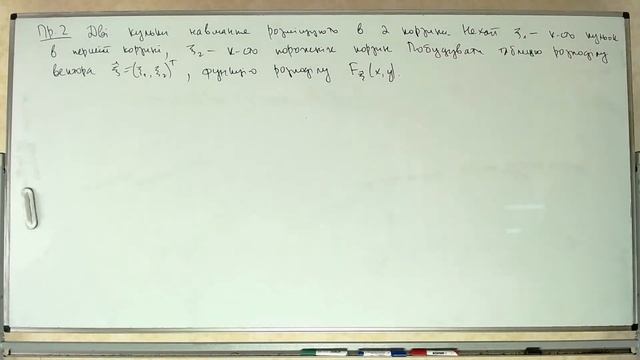 Пр.2 Дві кульки навмання розміщують в 2 корзини. Нехай ξ₁ - к-сть кульок
в першій корзині, ξ₂ - к-сть порожніх корзин. Побудувати таблицю розподілу
вектора ξ⃗=(ξ₁, ξ₂)ᵀ, функцію розподілу F_ξ⃗(x,y).